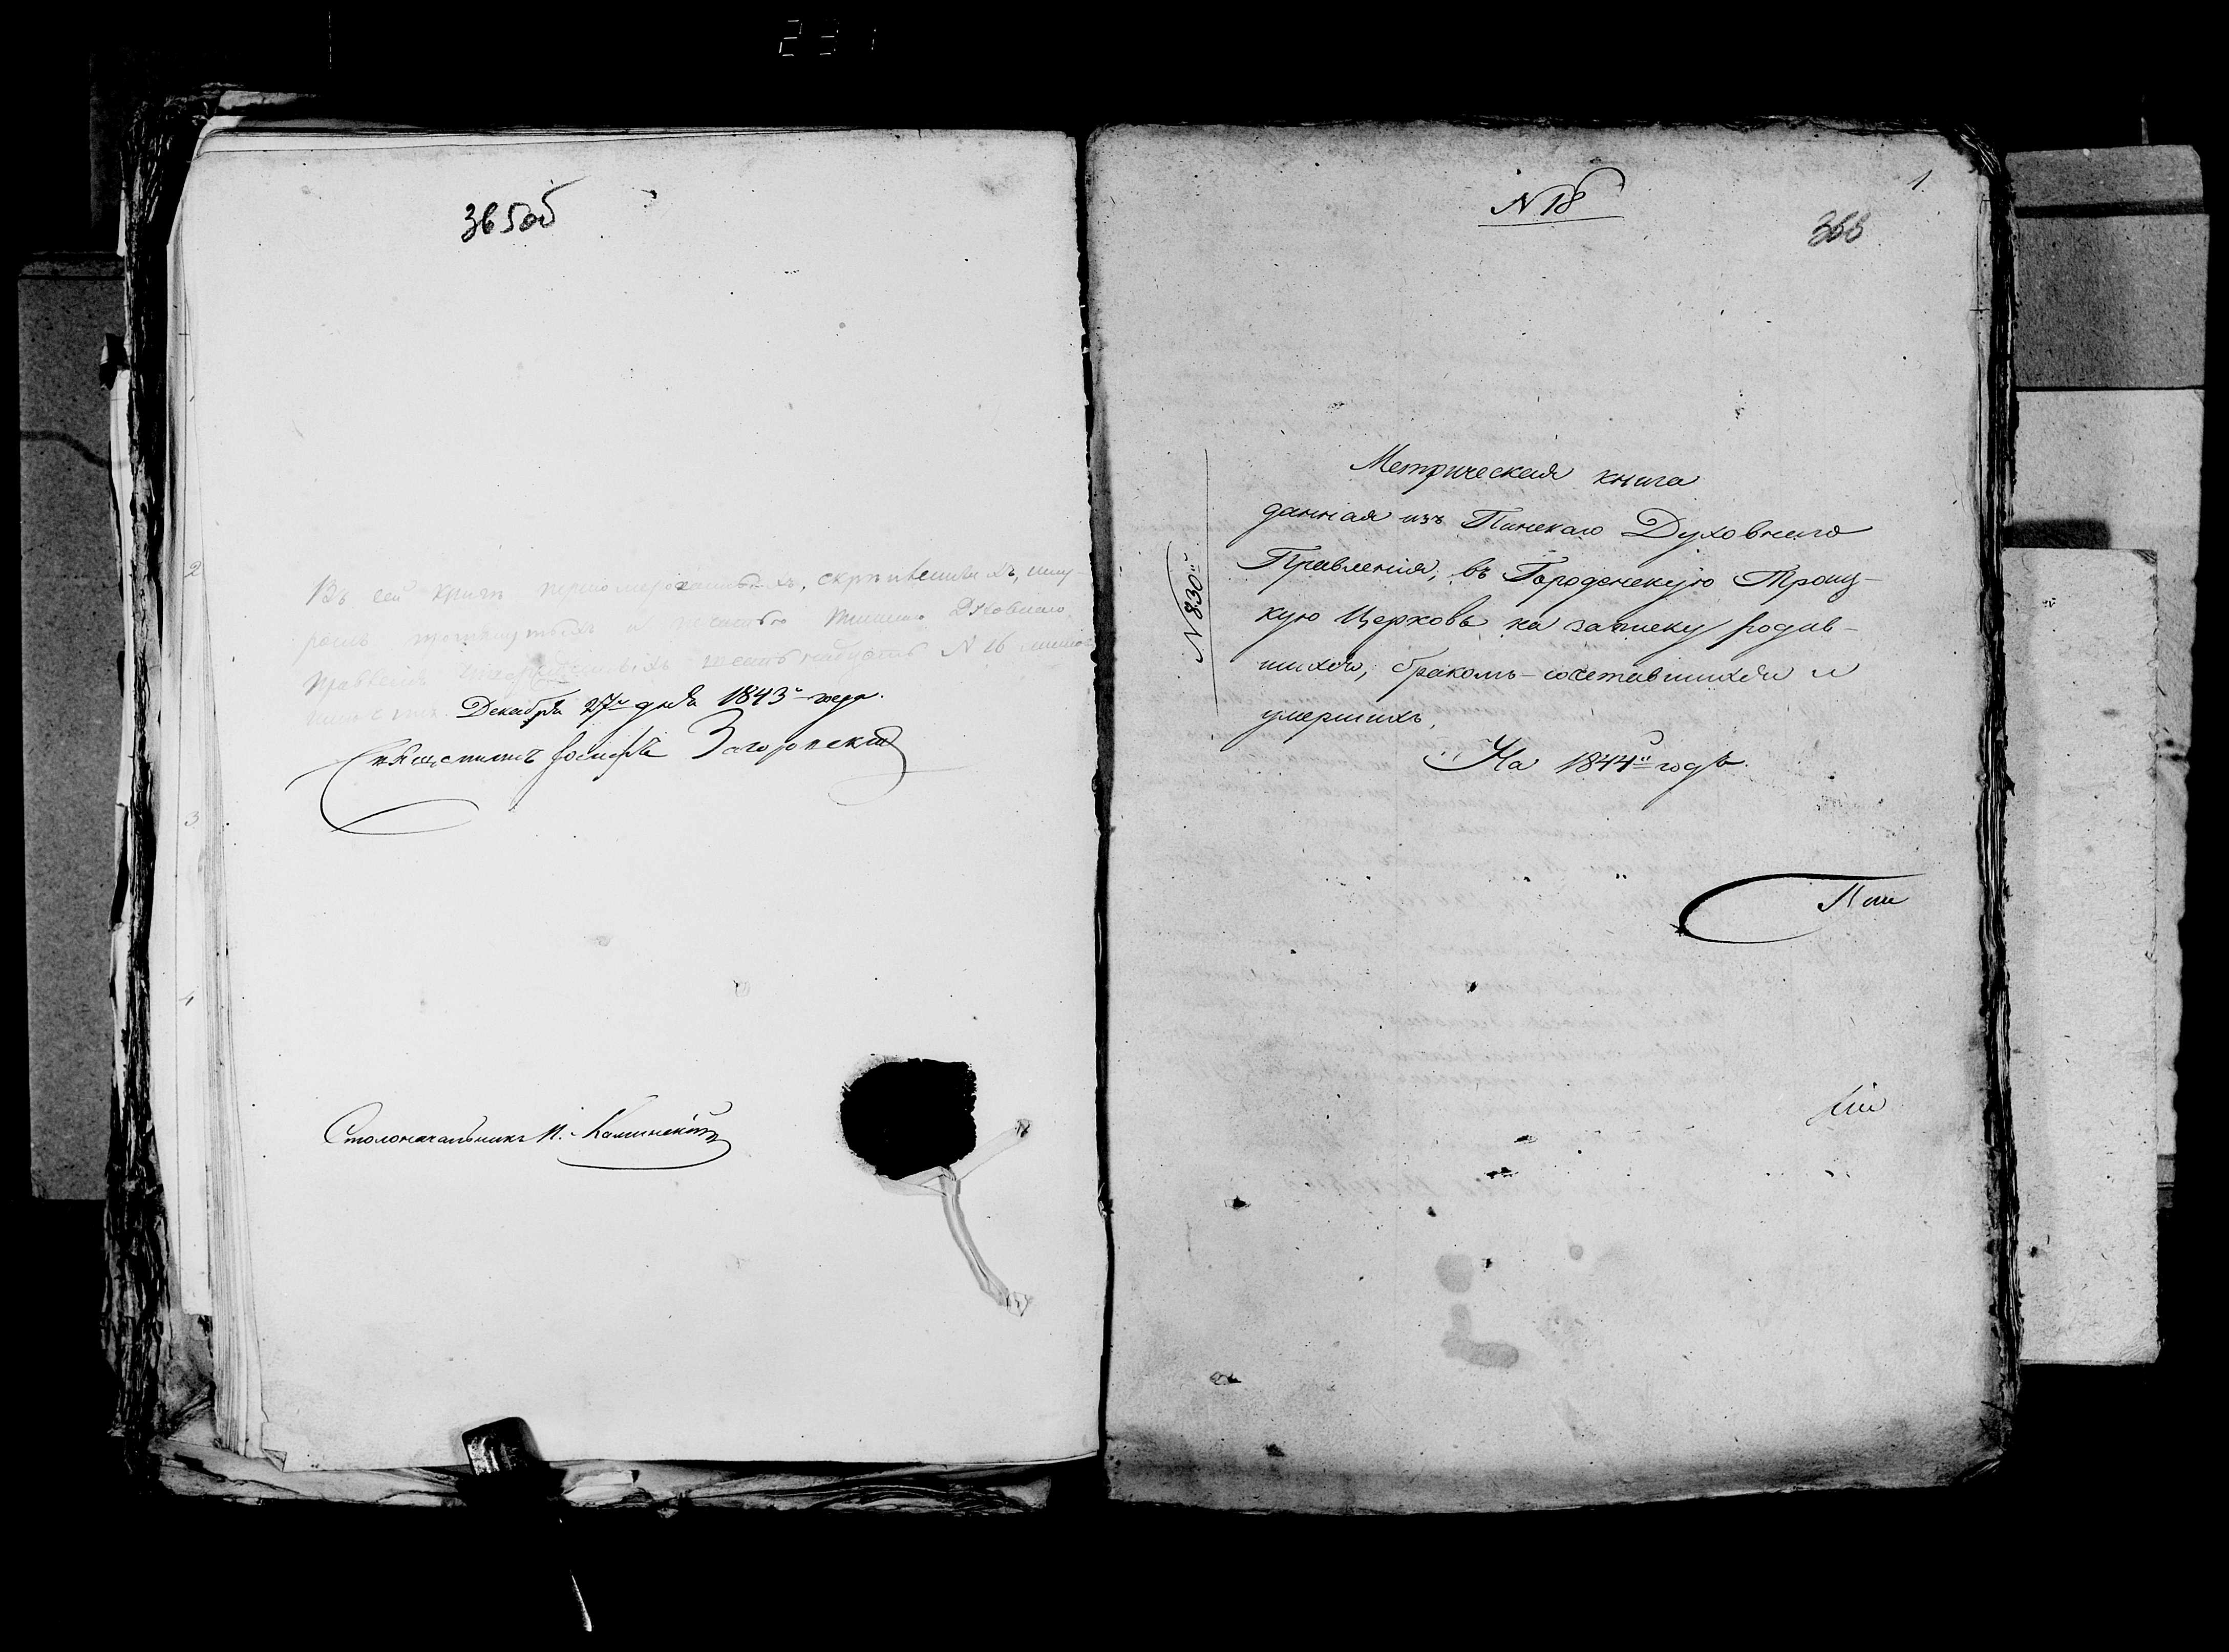 231
365об
Въ сей книгѣ перномерованныхъ, скрѣпленныхъ, шну-
ромъ и печатью Духовнаго
Правленія шестьнадцать N 16 листовъ
Декабря 27го дня 1843го года.
Священникъ Іосифъ Загоровскій
Столоначальникъ И. Каминскій
N 18
1
366
N 830й
Метрическая книга
данная изъ Пинскаго Духовнаго
Правленія, въ Городенскую Троиц-
кую Церковь на записку родив-
шихся, бракомъ-сочетавшихся и
умершихъ,
На 1844й годъ.
2
3
4